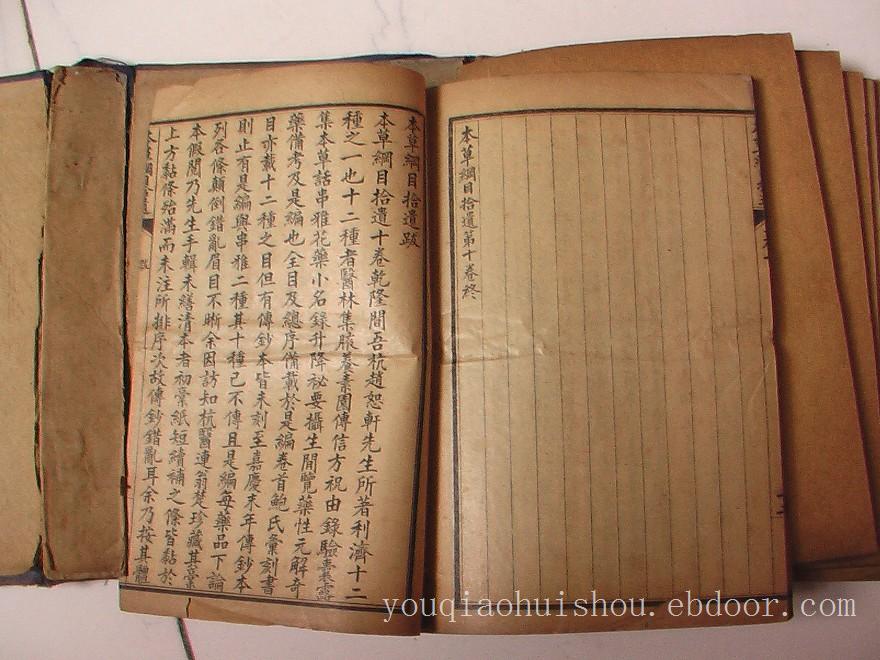 本草綱目拾遺第十卷終
本草綱目拾遺跋
本草綱目拾遺十卷乾隆間吾杭趙恕軒先生所著利濟十二
種之一也十二種者醫林集腋養素園傳信方祝由錄驗囊露
集本草話串雅花藥小名錄升降祕要攝生閒覽藥性元解奇
藥備考及是編也全目及總序備載於是編卷首鮑氏彙刻書
目亦載十二種之目但有傳鈔本皆未刻至嘉慶末年傳鈔本
則止有是編與串雅二種其十種已不傳且是編每藥品下論
列各條顛倒錯亂眉目不晰余因訪知杭醫連翁楚珍藏其稾
本假閱乃先生手輯未繕清本者初稾紙短續補之條皆黏於
上方黏條殆滿而未注所排序次故傳鈔錯亂耳余乃按其體
本草綱目拾遺
跋
youqiaohuishou.ebdoor.com